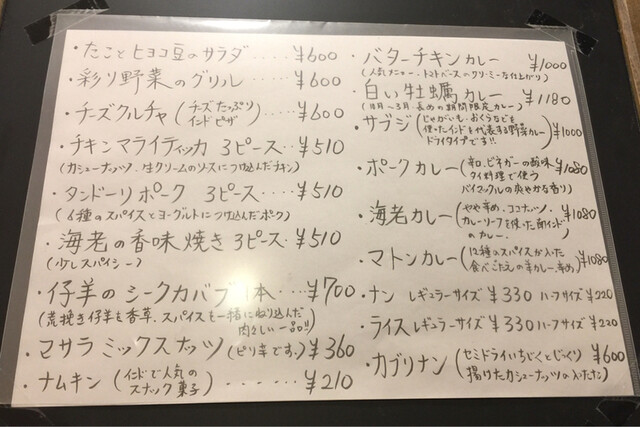 ・たことヒヨコ豆のサラダ・・・・¥600
・彩り野菜のグリル・・・・¥600
・チーズクルチャ(チーズたっぷり インドピザ)・・・・¥600
・チキンマライティッカ 3ピース・・・¥510
(カシューナッツ、生クリームのソースにつけ込んだチキン)
・タンドーリポーク 3ピース・・・・¥510
(6種のスパイスとヨーグルトにつけ込んだポーク)
・海老の香味焼き 3ピース・¥510
(少しスパイシー)
・仔羊のシークカバブ 1本・・¥700
(荒挽き仔羊を香草、スパイスを一緒にねり込んだ
肉々しい一品!!)
・マサラミックスナッツ(ピリ辛です。)¥360
・ナムキン(インドで人気の
スナック菓子)- - - - - ¥210
・バターチキンカレー ¥1000
(人気メニュー、トマトベースのクリーミーな仕上がり)
・白い牡蠣カレー ¥1180
(11月〜3月、長めの期間限定カレー)
・サブジ(じゃがいも、おくらなどを
使ったインドを代表する野菜カレー ¥1000
ドライタイプです!!)
・ポークカレー(辛口、ビネガーの酸味 ¥1080
タイ料理で使う
バイマックルの爽やかな香り)
・海老カレー(やや辛め、ココナッツ、 ¥1080
カレーリーフを使った南インド
のカレー)
・マトンカレー(12種のスパイスが入った ¥1080
食べごたえの羊カレー、辛め)
・ナン レギュラーサイズ ¥330 ハーフサイズ ¥220
・ライス レギュラーサイズ ¥330 ハーフサイズ ¥220
・カブリナン(セミドライいちじくとじっくり ¥600
揚げたカシューナッツの入ったナン)